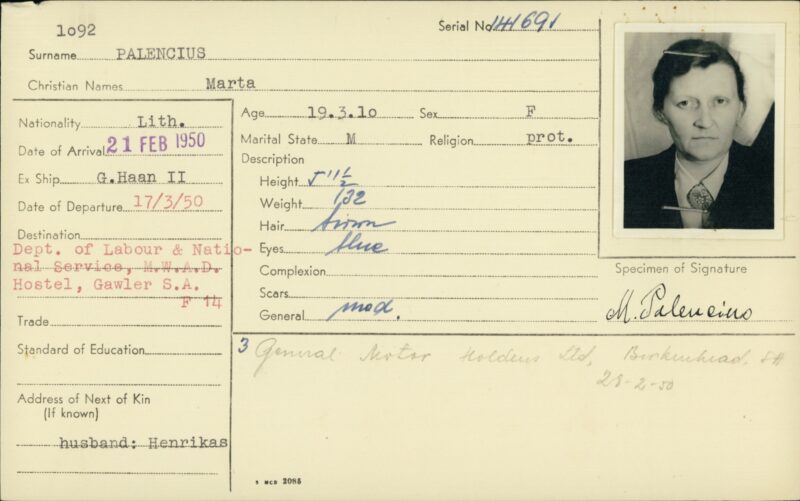 1092
Serial No 141691
Surname PALENCIUS
Christian Names Marta
Nationality Lith.
Date of Arrival 21 FEB 1950
Ex Ship G.Haan II
Date of Departure 17/3/50
Destination
Dept. of Labour & Natio-
nal Service, M.W.A.D.
Hostel, Gawler S.A.
F 14
Trade
Standard of Education
Address of Next of Kin
(If known)
husband: Henrikas
Age 19.3.10 Sex F
Marital State M Religion prot.
Description
Height 5' 1 1/2
Weight 132
Hair brown
Eyes blue
Complexion
Scars
General med.
Specimen of Signature
M. Palencius
3 General Motor Holdens Ltd, Birkenhead. SA
28-2-50
5 MCB 2085